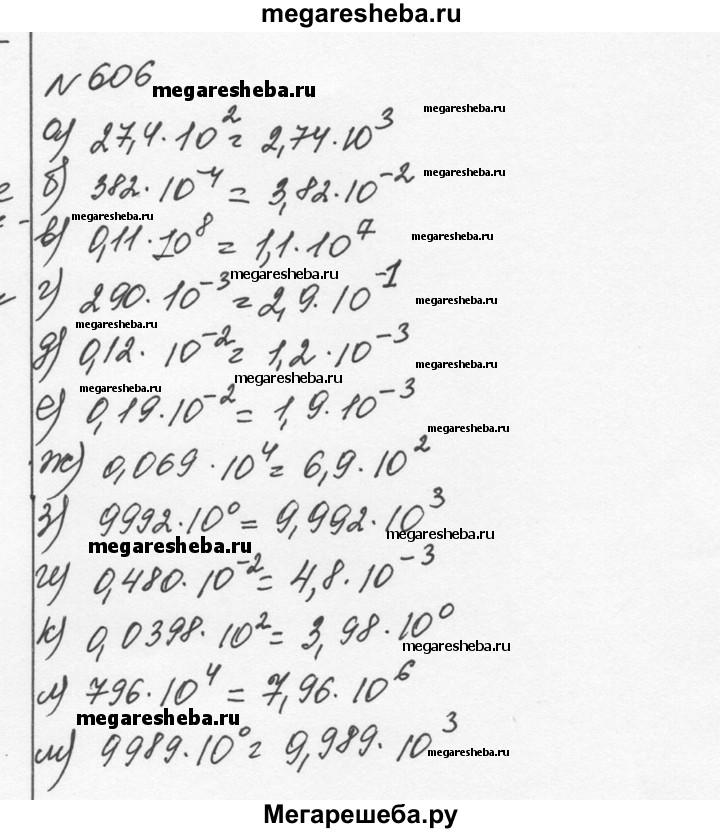 megaresheba.ru
№ 606
megaresheba.ru
а) 27,4·10² = 2,74·10³
megaresheba.ru
б) 382·10⁻⁴ = 3,82·10⁻²
megaresheba.ru
megaresheba.ru
в) 0,11·10⁸ = 1,1·10⁷
megaresheba.ru
megaresheba.ru
г) 290·10⁻³ = 2,9·10⁻¹
megaresheba.ru
megaresheba.ru
д) 0,12·10⁻² = 1,2·10⁻³
megaresheba.ru
megaresheba.ru
megaresheba.ru
е) 0,19·10⁻² = 1,9·10⁻³
megaresheba.ru
ж) 0,069·10⁴ = 6,9·10²
з) 9992·10⁰ = 9,992·10³
megaresheba.ru
megaresheba.ru
и) 0,480·10⁻² = 4,8·10⁻³
к) 0,0398·10² = 3,98·10⁰
megaresheba.ru
л) 796·10⁴ = 7,96·10⁶
megaresheba.ru
м) 9989·10⁰ = 9,989·10³
megaresheba.ru
Мегарешеба.ру